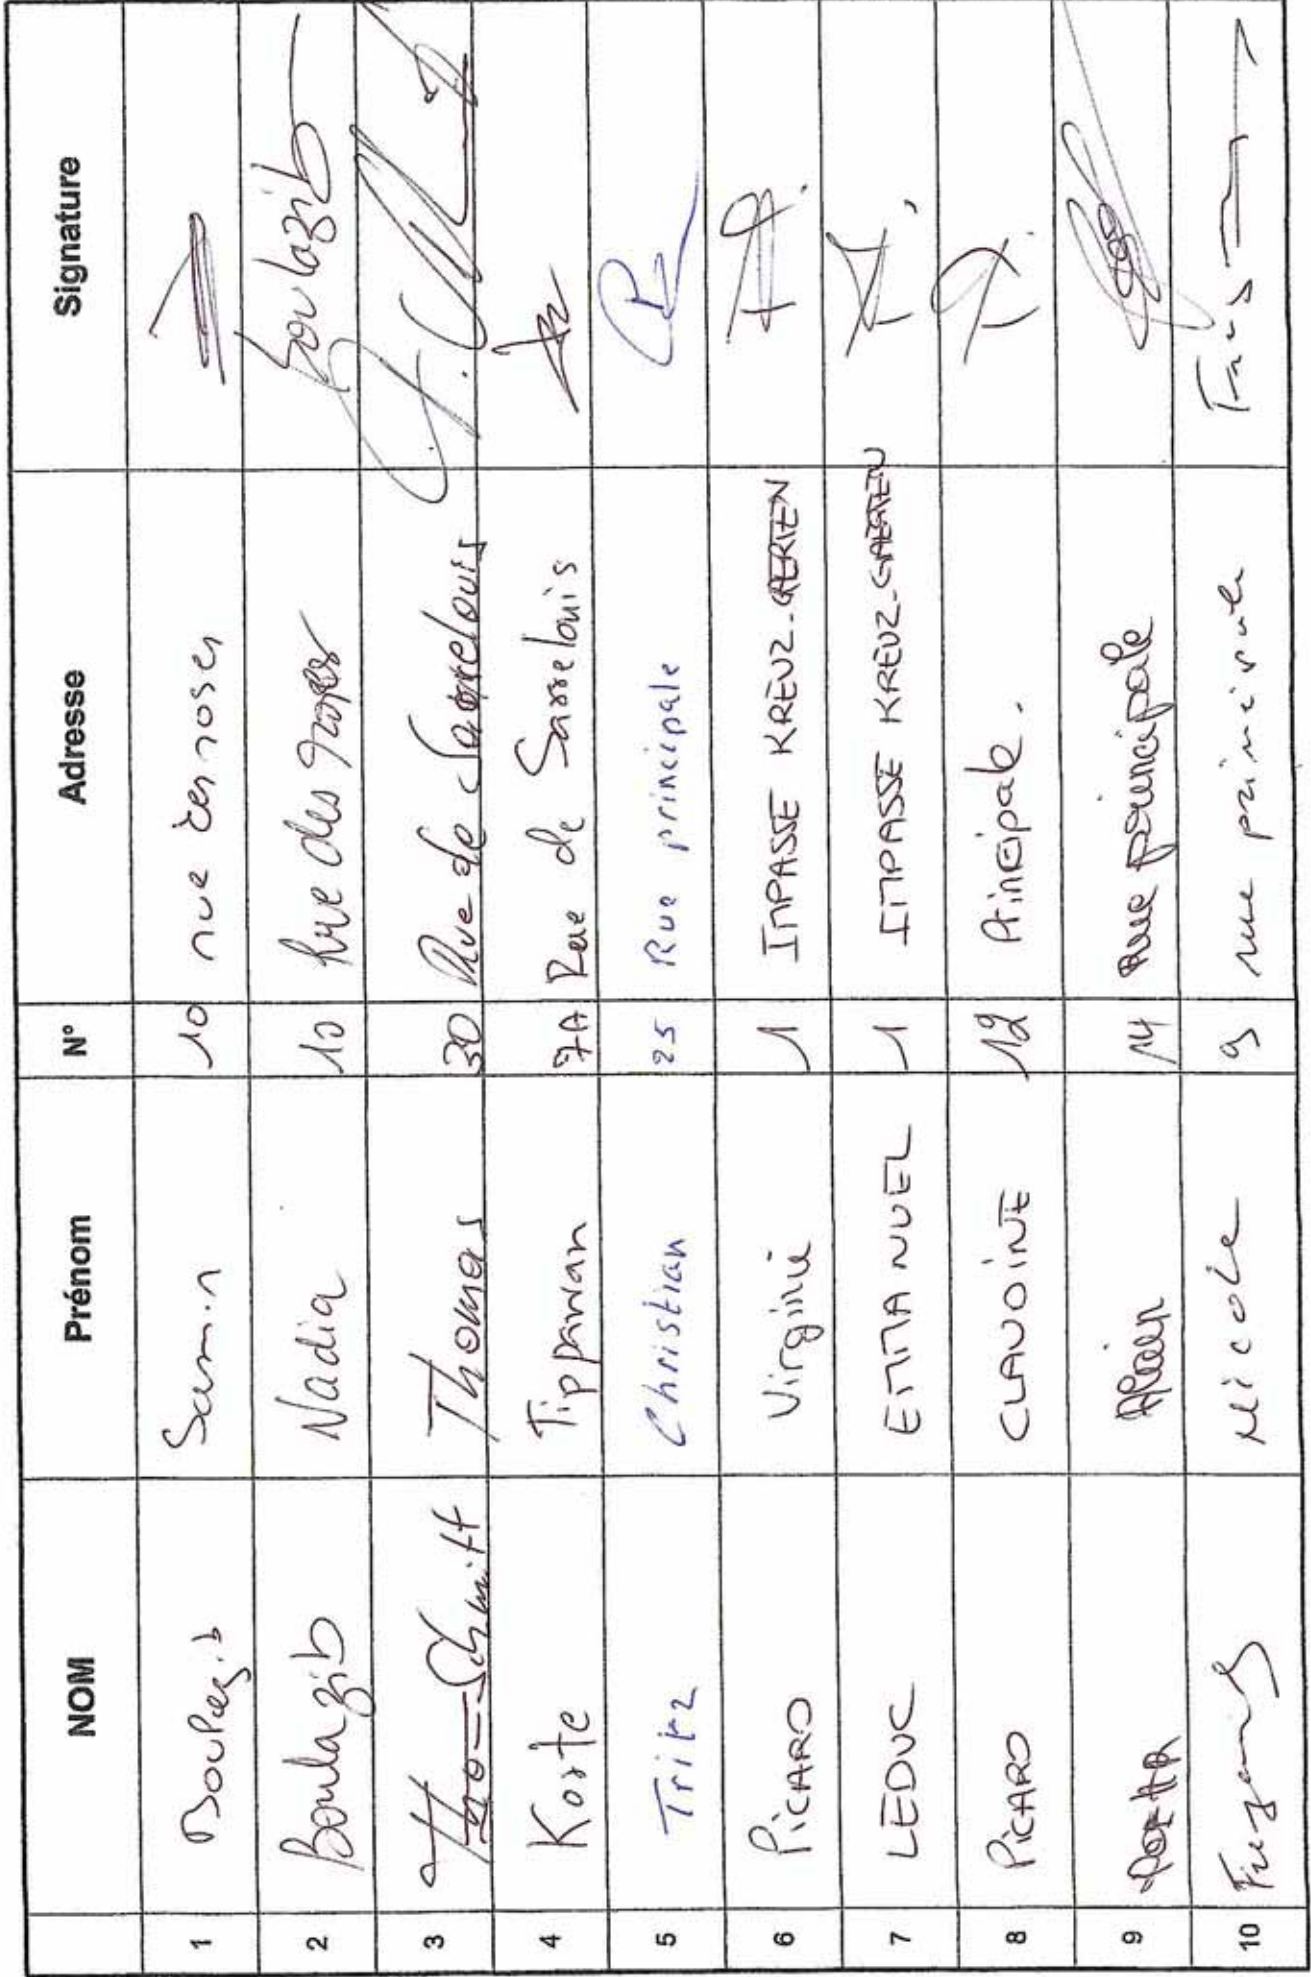 NOM Prénom N° Adresse Signature
1 Boulazib Samin 10 rue des roses
2 Boulazib Nadia 10 Rue des roses Boulazib
3 Schmitt Thomas 30 Rue de Sarrelouis
4 Korte Tippawan 7A Rue de Sarrelouis
5 Tritz Christian 25 Rue principale
6 PICARD Virginie 1 IMPASSE KREUZ-GARTEN
7 LEDUC EMMANUEL 1 IMPASSE KREUZ-GARTEN
8 PICARD CLAUDINE 12 Principale.
9 Alain 14 Rue principale
10 Nicole 9 rue principale